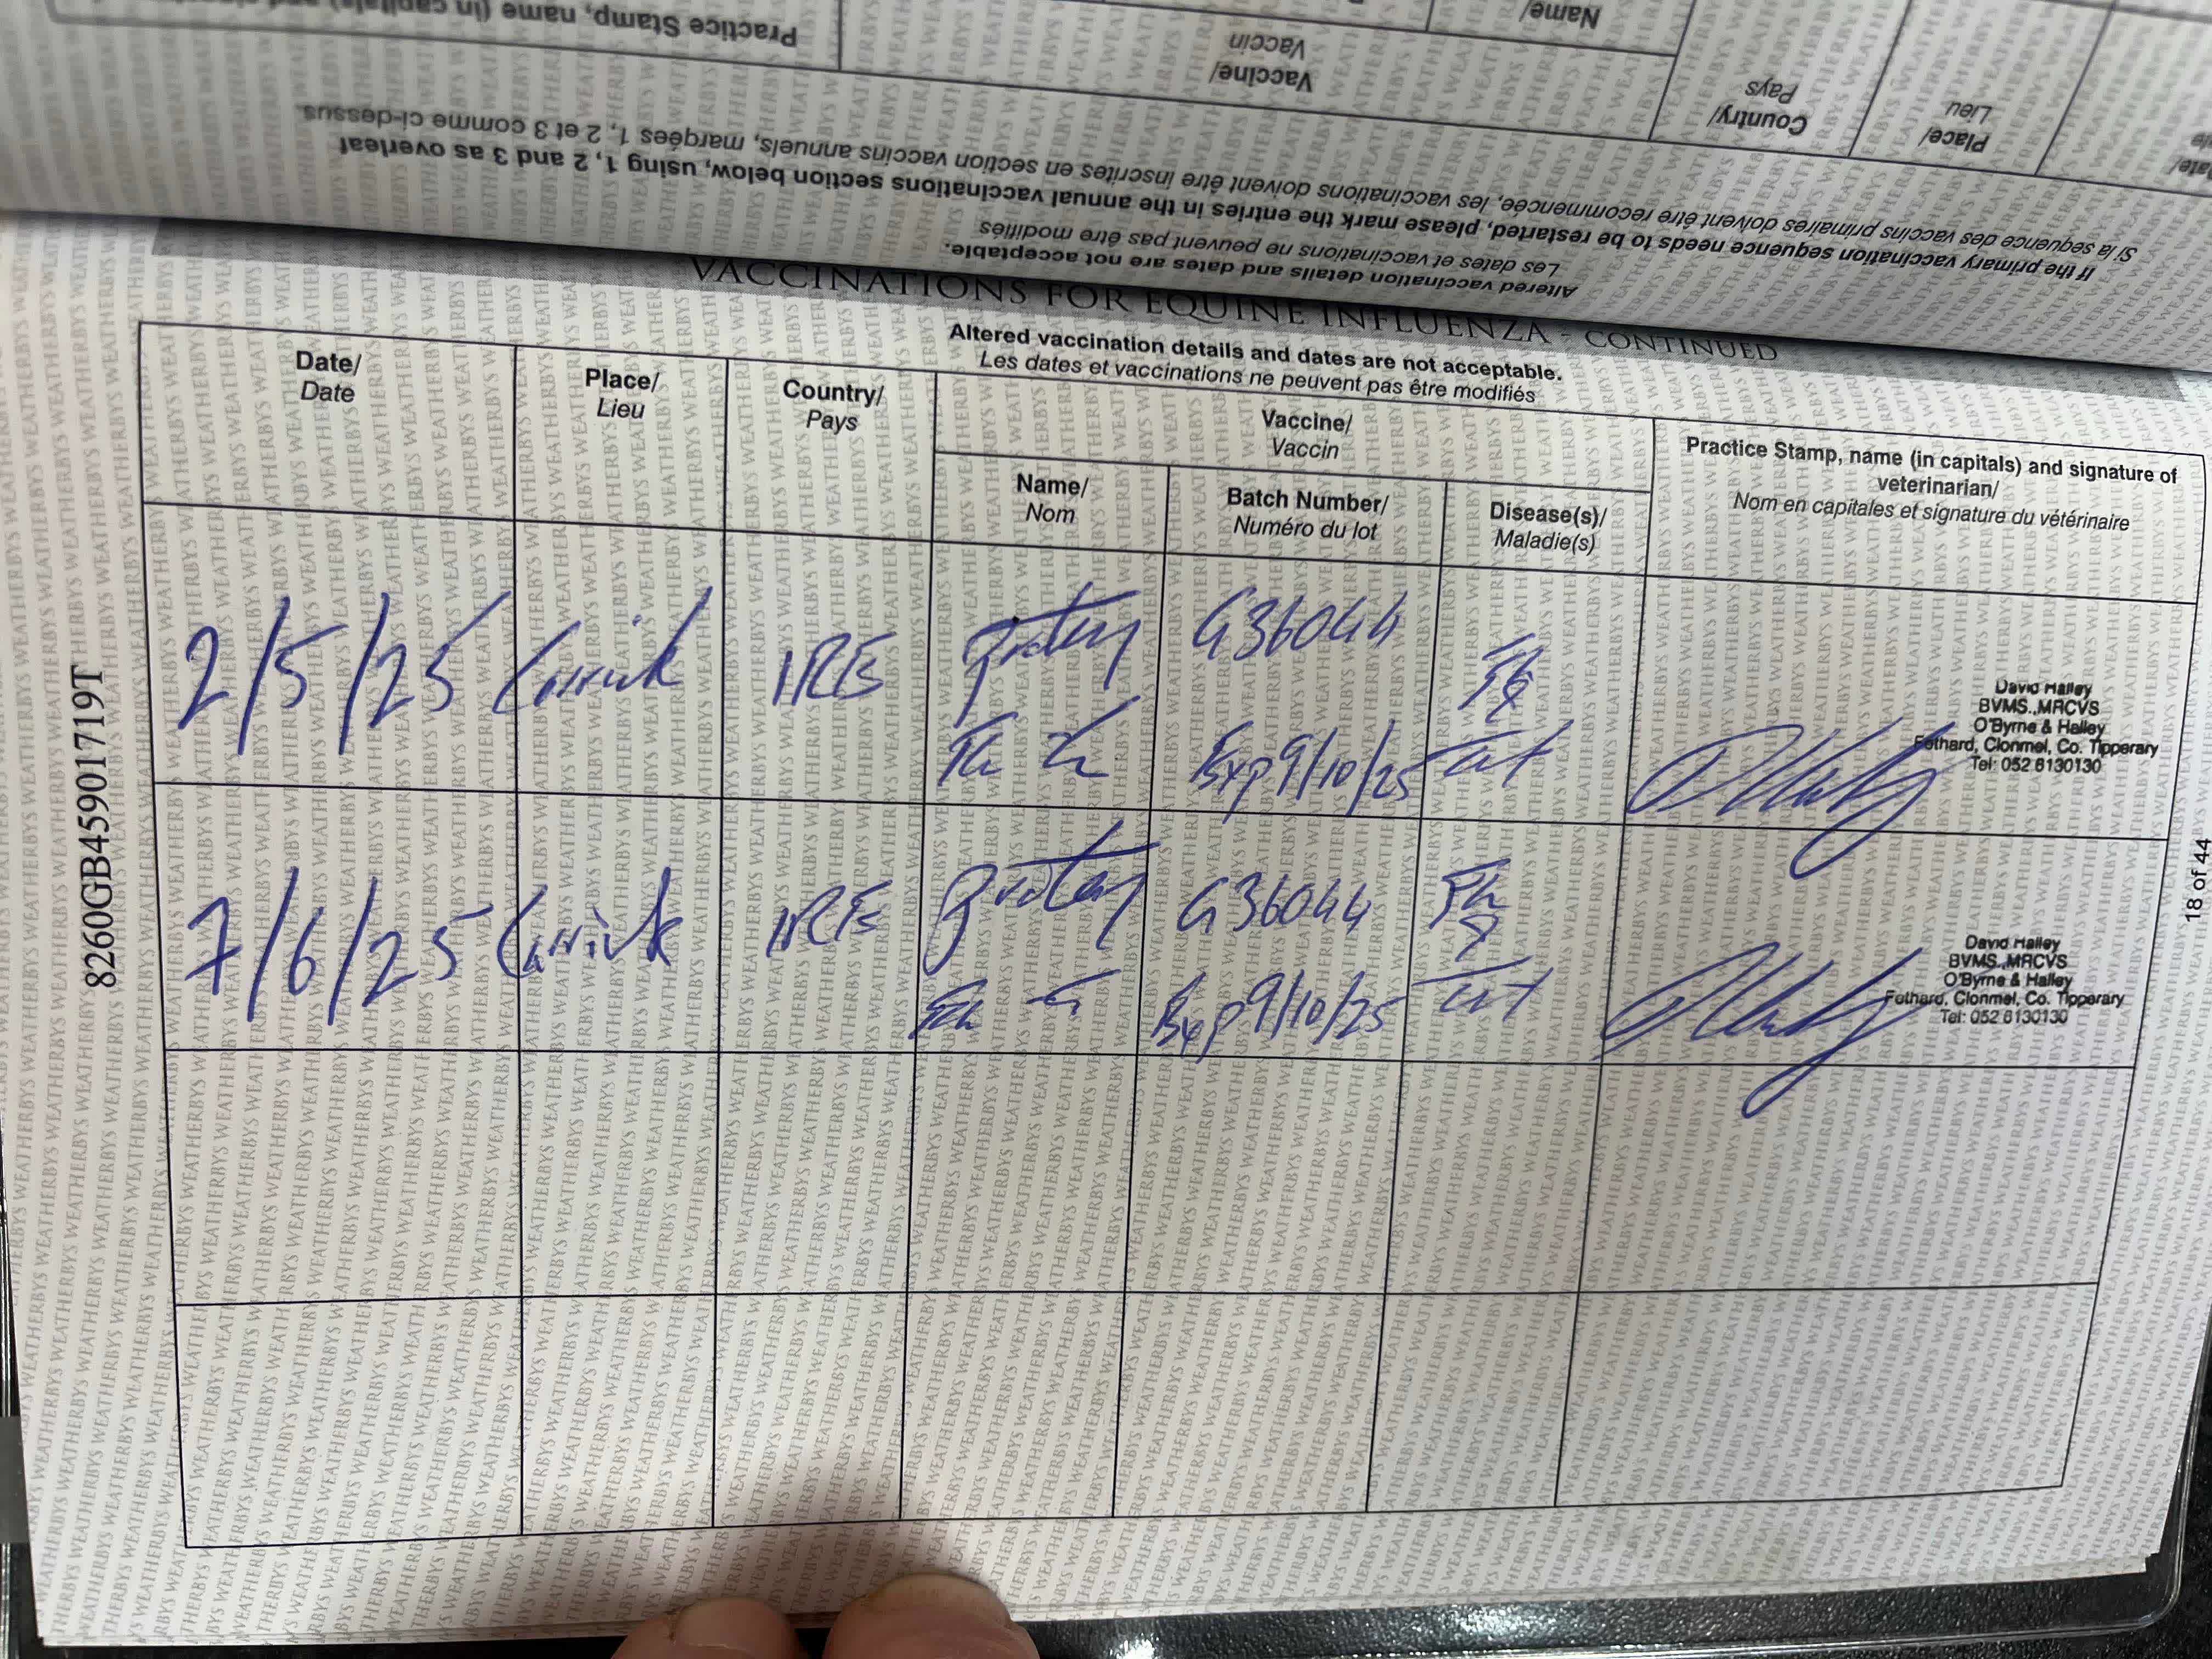 Practice Stamp, name (in capitals) and
Vaccine/
Vaccin
Name/
Country/
Pays
Place/
Lieu
If the primary vaccination sequence needs to be restarted, please mark the entries in the annual vaccinations section below, using 1, 2 and 3 as overleaf
Si la sequence des vaccins primaires doivent être recommencée, les vaccinations doivent être inscrites en section vaccins annuels, marqées 1, 2 et 3 comme ci-dessus.
Altered vaccination details and dates are not acceptable.
Les dates et vaccinations ne peuvent pas être modifiés
VACCINATIONS FOR EQUINE INFLUENZA - CONTINUED
Altered vaccination details and dates are not acceptable.
Les dates et vaccinations ne peuvent pas être modifiés
Date/
Date
Place/
Lieu
Country/
Pays
Vaccine/
Vaccin
Name/
Nom
Batch Number/
Numéro du lot
Disease(s)/
Maladie(s)
Practice Stamp, name (in capitals) and signature of
veterinarian/
Nom en capitales et signature du vétérinaire
2/5/25 Carrick IRE G36044
Exp 9/10/25 Tet
David Halley
BVMS.,MRCVS
O'Byrne & Halley
Fethard, Clonmel, Co. Tipperary
Tel: 052 6130130
7/6/25 Carrick IRE G36044
Exp 9/10/25 Tet
David Halley
BVMS.,MRCVS
O'Byrne & Halley
Fethard, Clonmel, Co. Tipperary
Tel: 052 6130130
8260GB45901719T
18 of 44